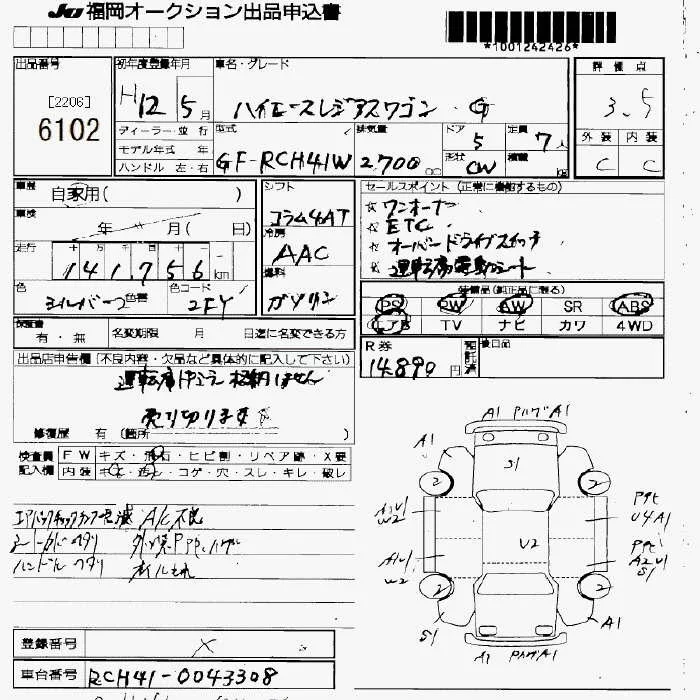 JU 福岡オークション出品申込書
*1001242426*
出品番号
[2206]
6102
初年度登録年月
H12 5月
車名・グレード
ハイエースレジアスワゴン G
評価点
3.5
外装 内装
C C
ディーラー・並行
モデル年式 年
ハンドル 左・右
型式
GF-RCH41W
排気量
2,700 cc
ドア
5
形状
CW
定員
7人
積載
kg
車歴
自家用( )
車検
年 月( 日)
走行
十 万 千 百 十 一
141,756 km
色
シルバー2
色替
カラーコード
2FY
シフト
コラム4AT
冷房
AAC
燃料
ガソリン
セールスポイント (正常に機能するもの)
☆ ワンオーナー
☆ ETC
☆ オーバードライブスイッチ
☆ 運転席電動シート
装備品(純正品に限る)
PS PW AW SR ABS
エアB TV ナビ カワ 4WD
保証書
有・無
名変期限 月 日迄に名変できる方
R券
14,890円
預託済
後日品
出品店申告欄 (不良内容・欠品など具体的に記入して下さい)
運転席
格納しません
売り切ります
修復歴 有 (箇所
検査員
記入欄
FW キズ・飛石・ヒビ割・リペア跡・X要
内装 キズ・コゲ・穴・スレ・キレ・破レ
エアバックチェックランプ点滅 A/C不良
シートカバーヘタリ
ハンドルスタリ オイルもれ
A1 PハゲA1
A1
S1
A1
2
2
W2
U2
U4A1
A1U1
W2
A2U1
S1
2
2
S1
A1
A1 PハゲA1
登録番号 X
車台番号 RCH41-0043308